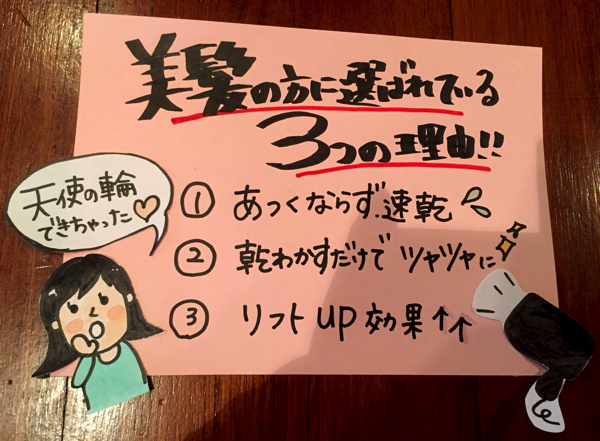 美髪の方に選ばれている
3つの理由!!
天使の輪
できちゃった♡
① あつくならず、速乾
② 乾わかすだけで ツヤツヤに
③ リフトup効果↑↑